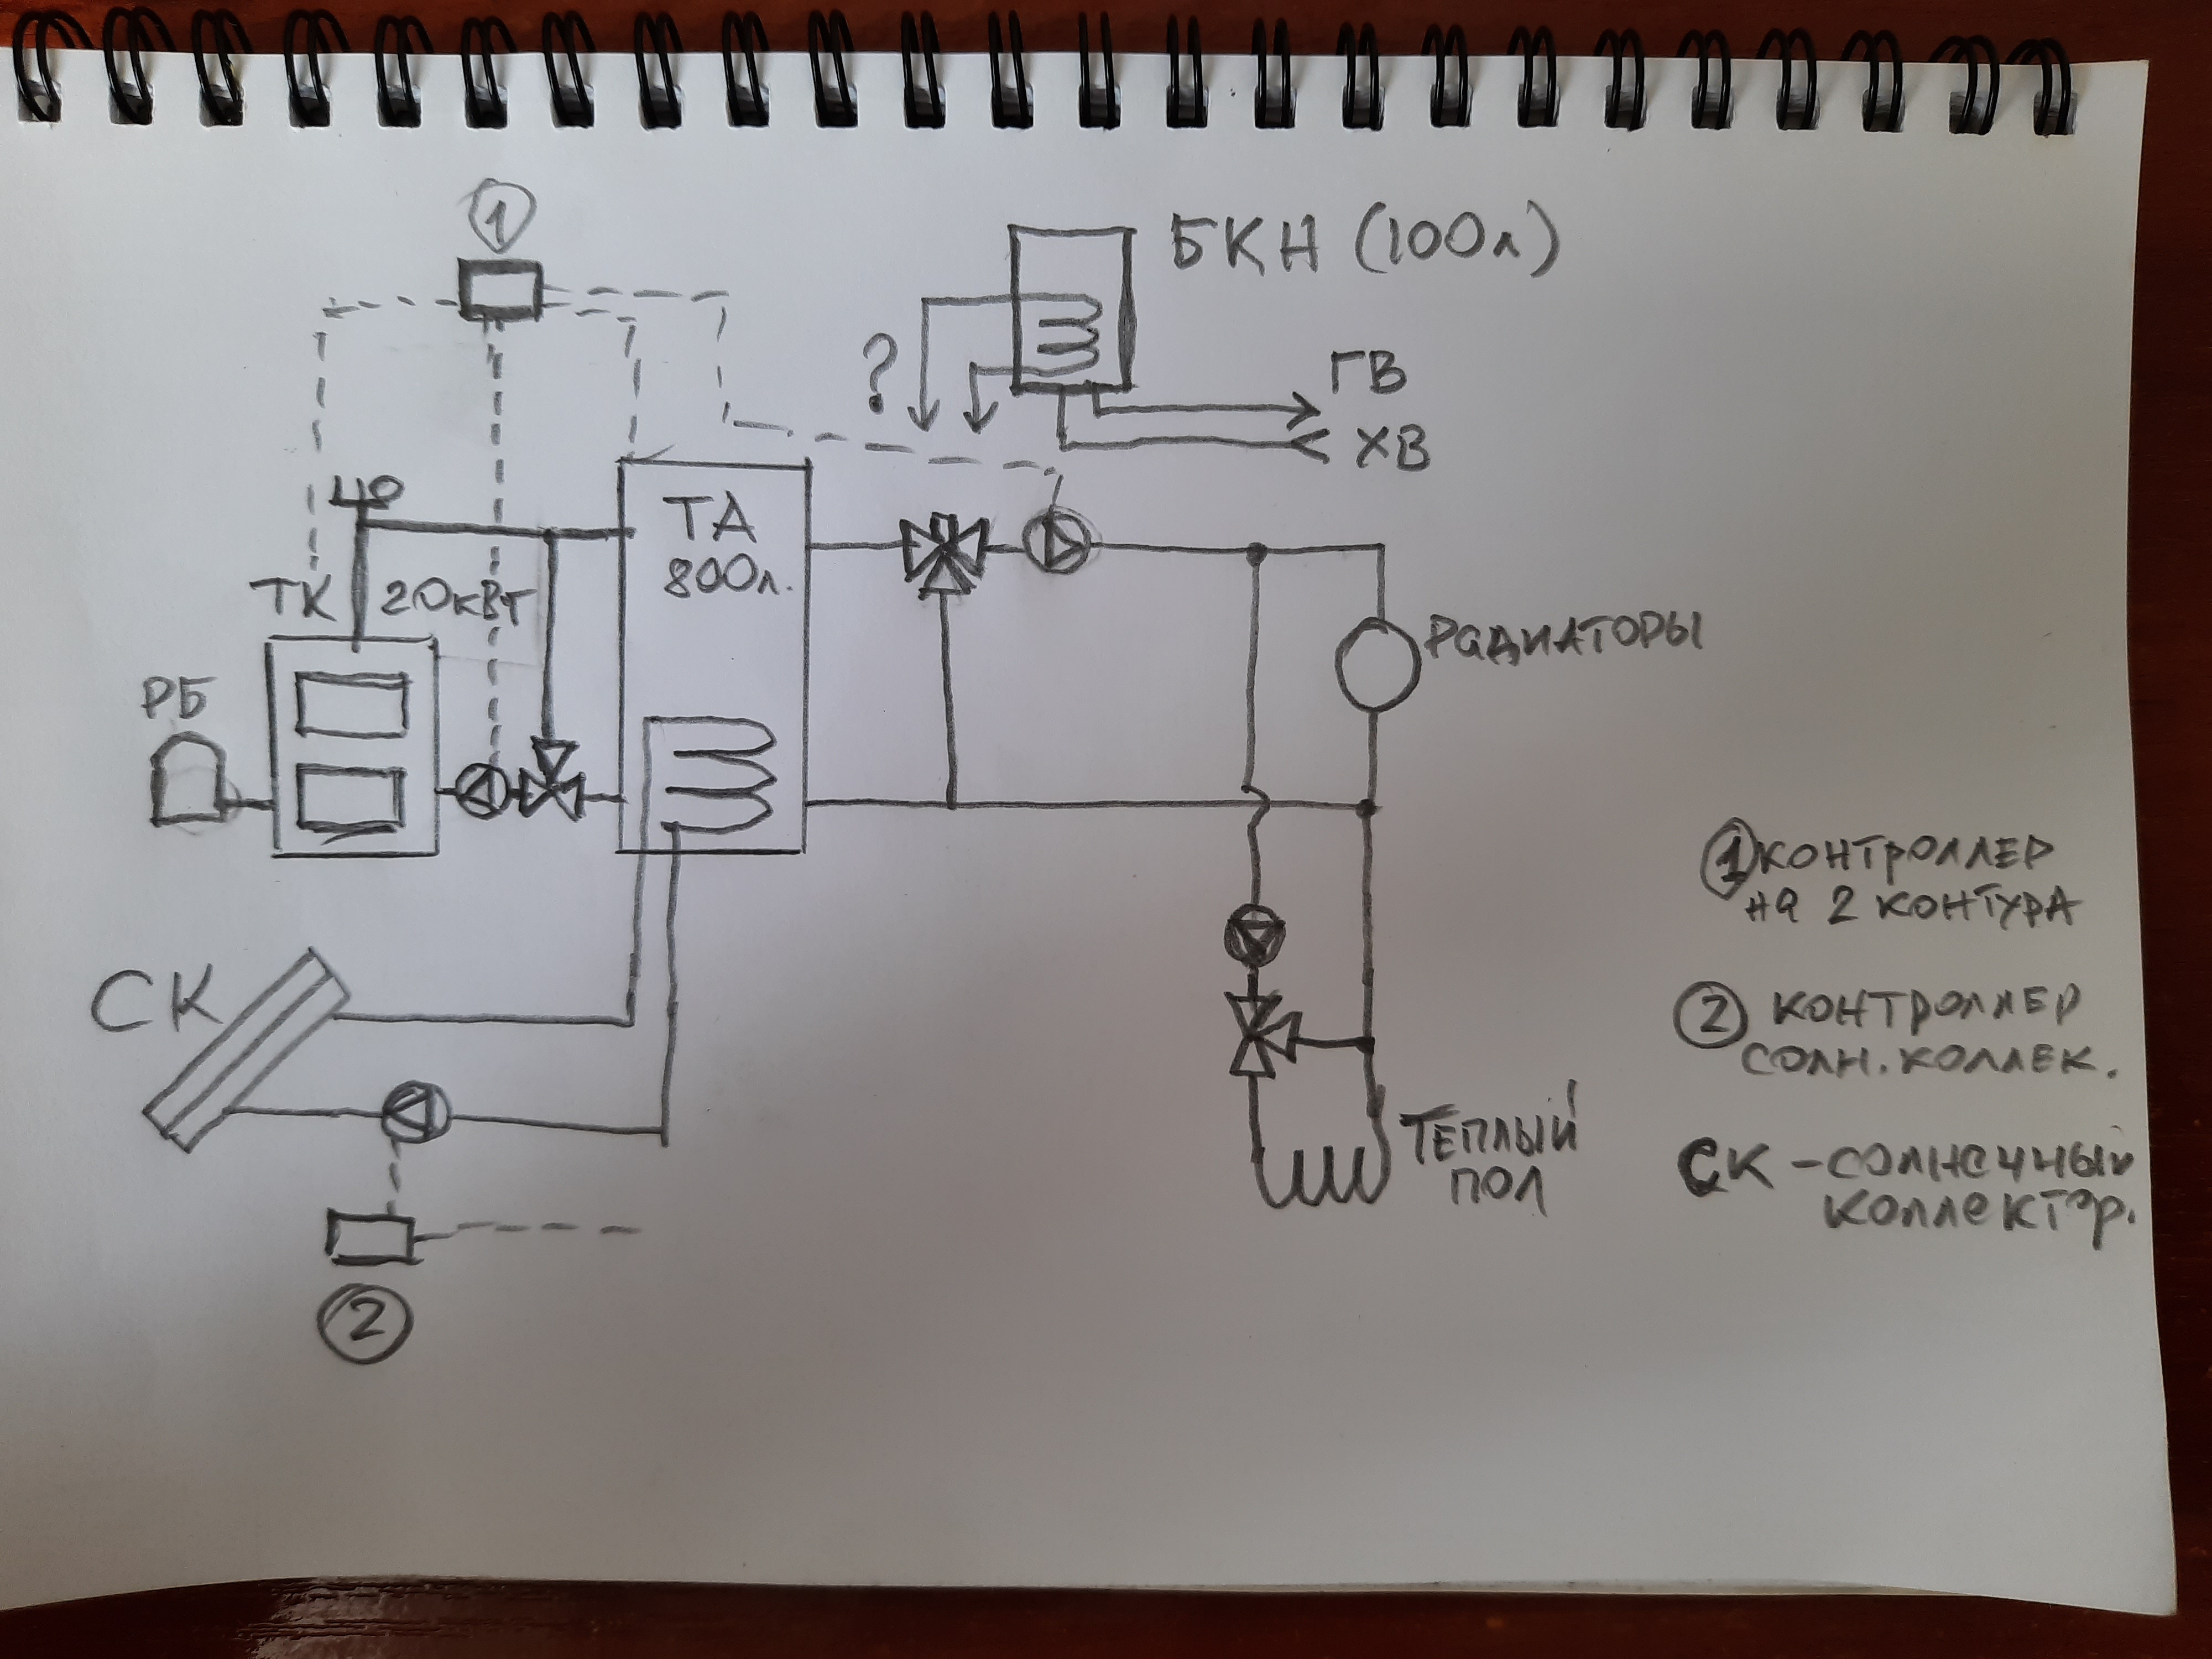 1
БКН (100л)
?
ГВ
ХВ
ТА
800л.
ТК 20кВт
РБ
РаДИАТОРЫ
1 КОНТРОЛЛЕР
На 2 КОНТУРА
СК
2 КОНТРОЛЛЕР
СОЛН. КОЛЛЕК.
ТЕПЛЫЙ
ПОЛ
СК – СОЛНеЧНЫЙ
КОЛЛеКТОР.
2